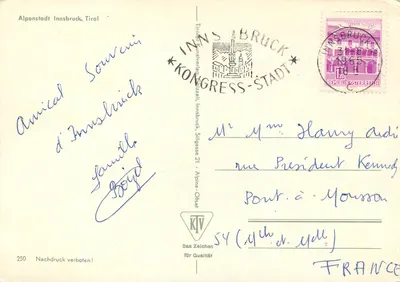 Alpenstadt Innsbruck, Tirol
INNSBRUCK
*KONGRESS-STADT*
INNSBRUCK
Amical Souvenir
d'Innsbruck
Famille
Mr Mme Hanry André
rue Président Kennedy
Pont-à-Mousson
54 (Mthe et Mlle)
FRANCE
KTV
Das Zeichen
für Qualität
250 Nachdruck verboten!